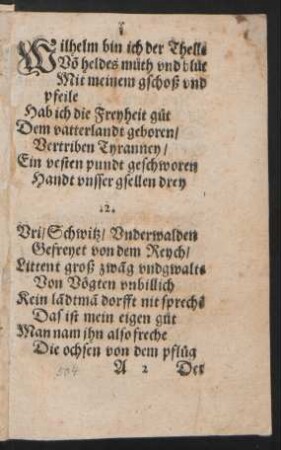 1.
Wilhelm bin ich der Thelle
Vō heldes můth vnd blůt
Mit meinem gschoß vnd
pfeile
Hab ich die Freyheit gůt
Dem vatterlandt geboren/
Vertriben Tyranney/
Ein vesten pundt geschworen
Handt vnsser gsellen drey
.2.
Vri/ Schwitz/ Vnderwalden
Gefreyet von dem Reych/
Littent groß zwāg vndgwalte
Von Vögten vnbillich
Kein lādtmā dorfft nit spreche
Das ist mein eigen gůt
Man nam ihn also freche
Die ochsen von dem pflůg
A 2 Der
504